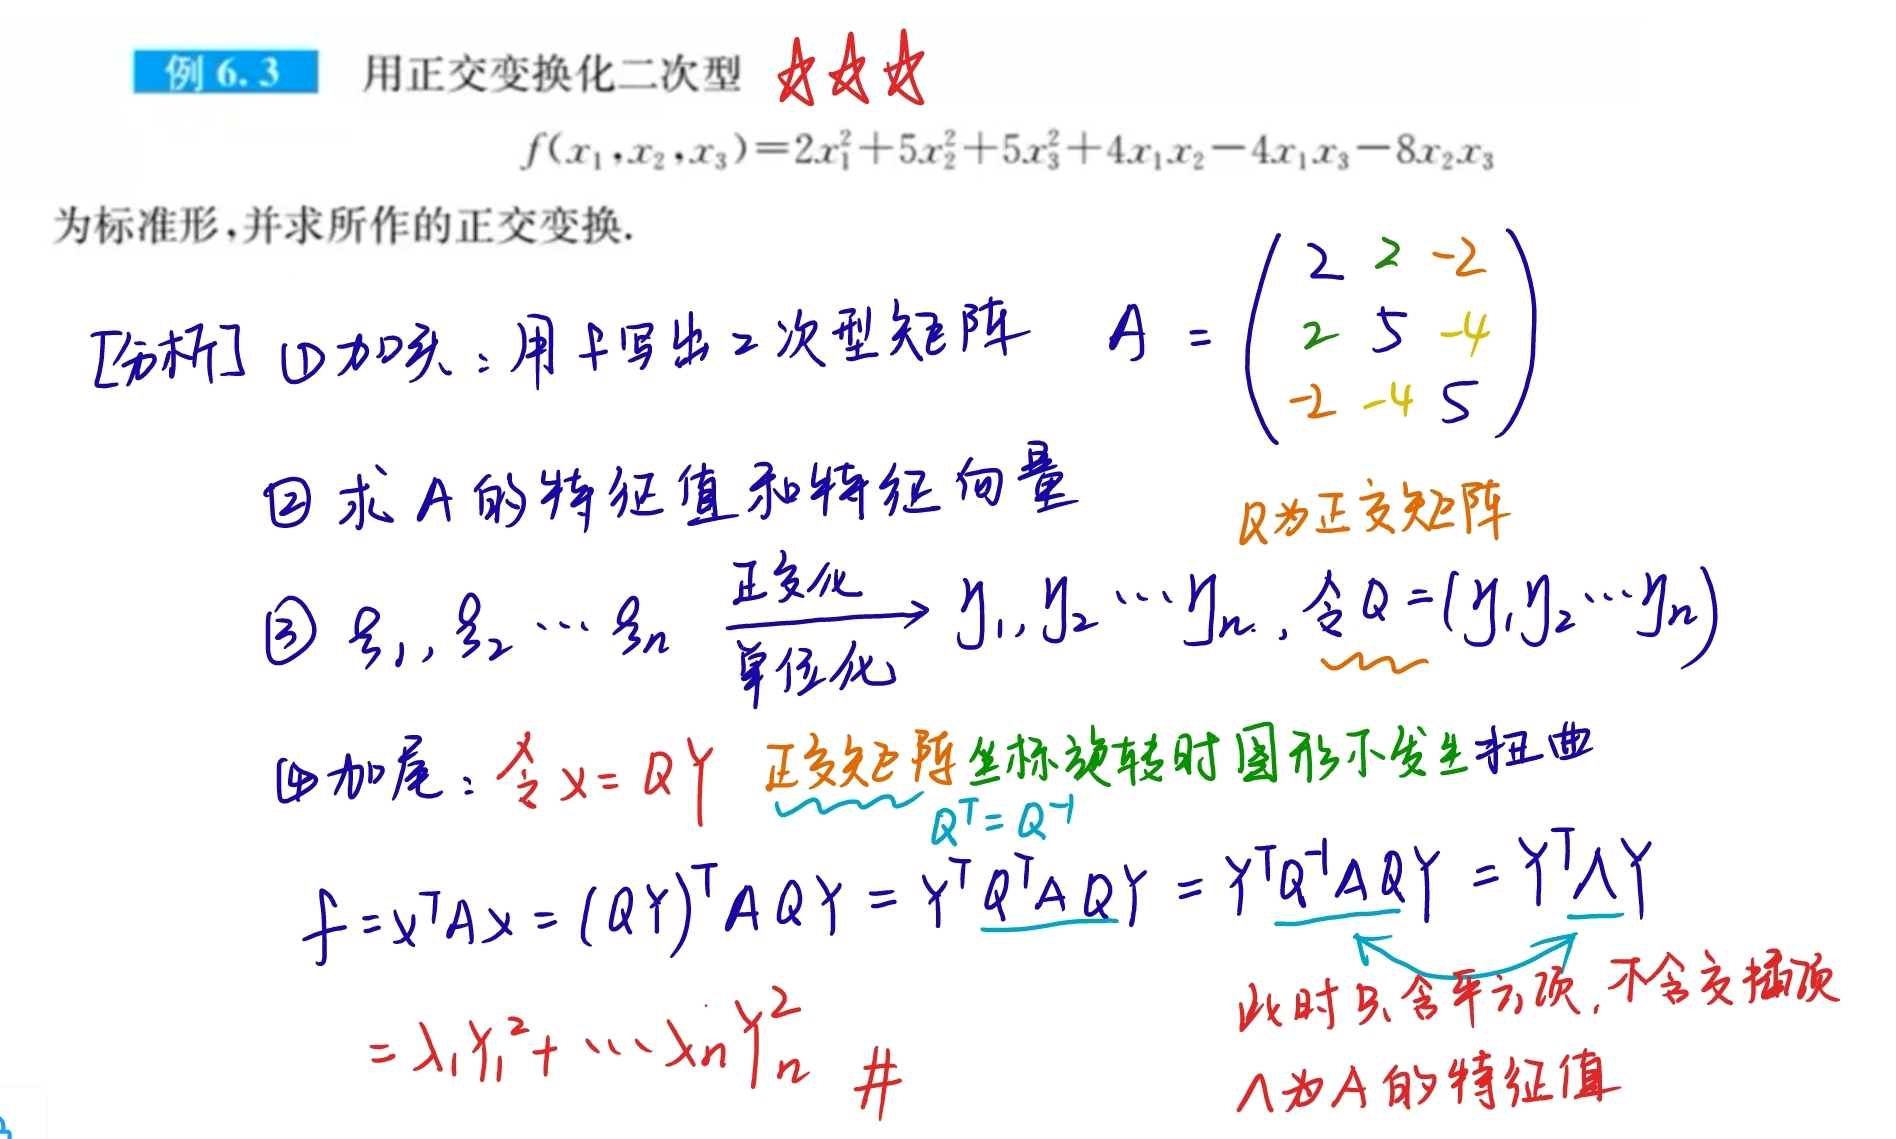 例 6.3 用正交变换化二次型 ☆☆☆
f(x₁,x₂,x₃)=2x₁²+5x₂²+5x₃²+4x₁x₂-4x₁x₃-8x₂x₃
为标准形,并求所作的正交变换.
[分析] ①加头:用f写出2次型矩阵 A = (2 2 -2
2 5 -4
-2 -4 5)
②求A的特征值和特征向量
Q为正交矩阵
③ ξ₁, ξ₂ … ξn 正交化 单位化 → η₁, η₂ … ηn, 令Q=(η₁ η₂ … ηn)
④加尾:令x=QY 正交矩阵坐标旋转时图形不发生扭曲
Qᵀ=Q⁻¹
f=xᵀAx=(QY)ᵀAQY=YᵀQᵀAQY=YᵀQ⁻¹AQY=YᵀΛY
此时只含平方项,不含交插项
=λ₁Y₁²+…λnYn² #
Λ为A的特征值